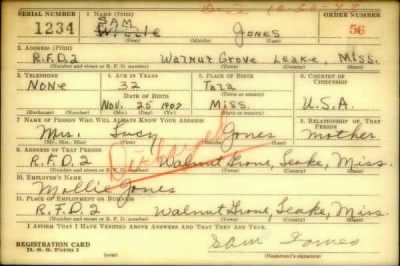 SERIAL NUMBER 1. NAME (Print) ORDER NUMBER
1234 SAM Willie Jones 56
(First) (Middle) (Last)
2. ADDRESS (Print)
R.F.D.2 Walnut Grove Leake, Miss.
(Number and street or R. F. D. number) (Town) (County) (State)
3. TELEPHONE 4. AGE IN YEARS 5. PLACE OF BIRTH 6. COUNTRY OF CITIZENSHIP
None 32
DATE OF BIRTH
Nov. 25 1907 Miss. U.S.A.
(Exchange) (Number) (Mo.) (Day) (Yr.) (State or country)
7. NAME OF PERSON WHO WILL ALWAYS KNOW YOUR ADDRESS 8. RELATIONSHIP OF THAT PERSON
Mrs. Lucy Jones Mother
(Mr., Mrs., Miss) (First) (Middle) (Last)
9. ADDRESS OF THAT PERSON
R.F.D. 2 Walnut Grove, Leake, Miss.
(Number and street or R. F. D. number) (Town) (County) (State)
10. EMPLOYER'S NAME
Mollie Jones
11. PLACE OF EMPLOYMENT OR BUSINESS
R.F.D. 2 Walnut Grove, Leake, Miss.
(Number and street or R. F. D. number) (Town) (County) (State)
I AFFIRM THAT I HAVE VERIFIED ABOVE ANSWERS AND THAT THEY ARE TRUE.
REGISTRATION CARD
D. S. S. Form 1
Sam Jones
(Registrant's signature)